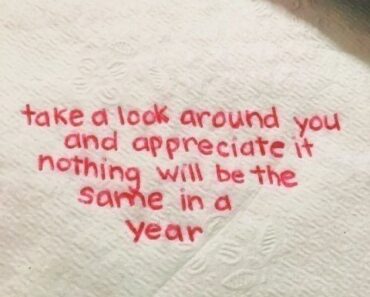 take a look around you
and appreciate it
nothing will be the
same in a
year